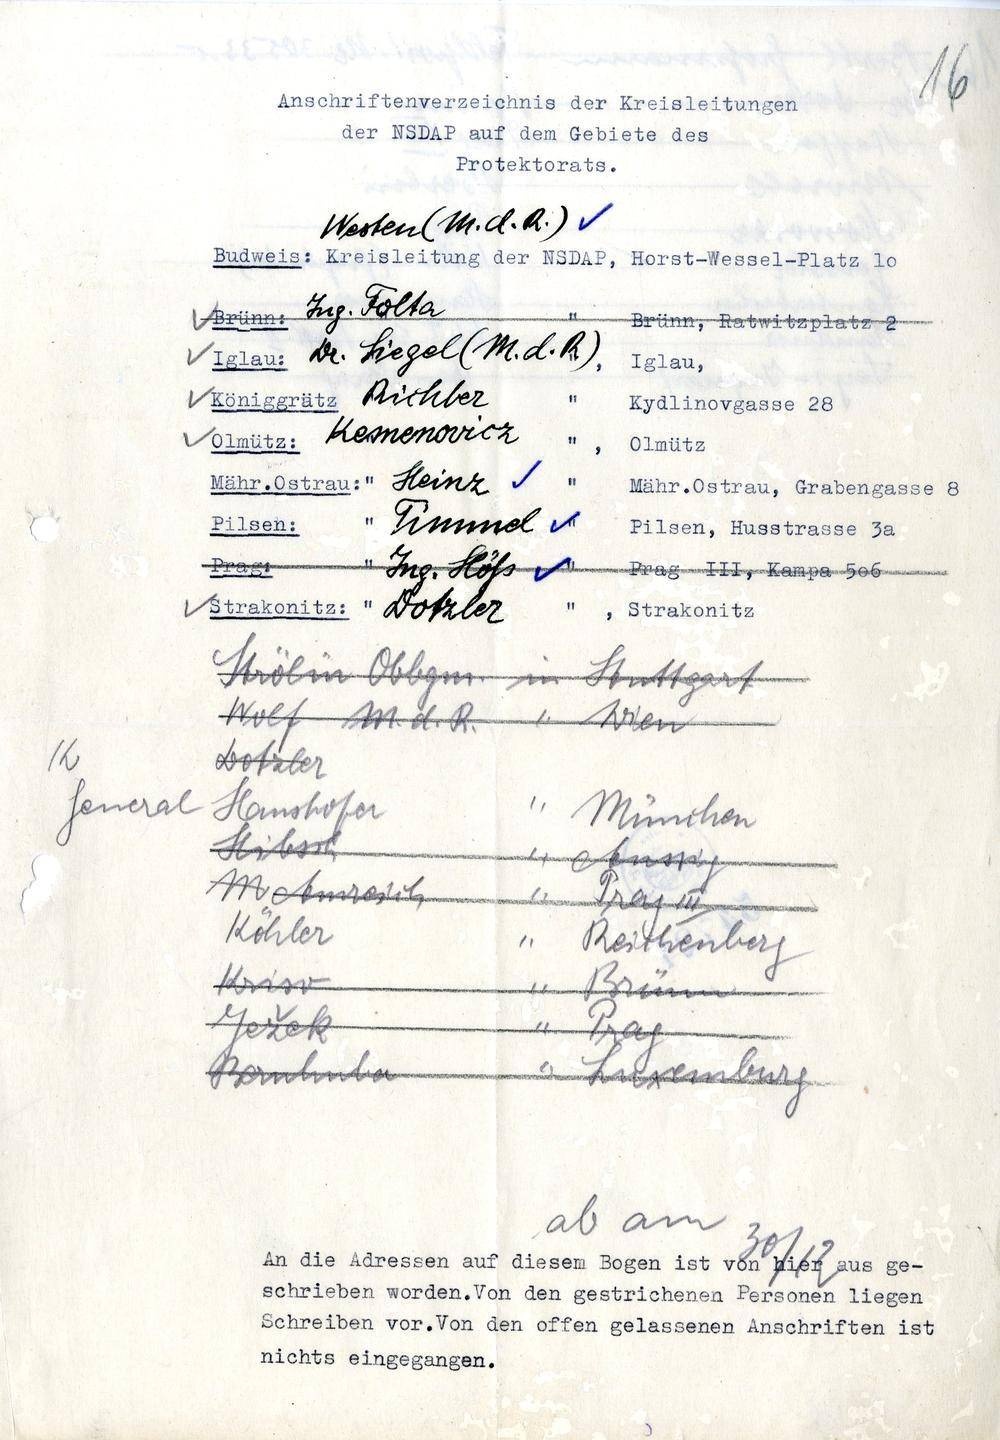 16
Anschriftenverzeichnis der Kreisleitungen
der NSDAP auf dem Gebiete des
Protektorats.
Westen (M.d.R.) ✓
Budweis: Kreisleitung der NSDAP, Horst-Wessel-Platz 1o
✓ Brünn: Ing. Folta " Brünn, Ratwitzplatz 2
✓ Iglau: Dr. Siegel (M.d.R), Iglau,
✓ Königgrätz Richber " Kydlinovgasse 28
✓ Olmütz: Kemenovicz " , Olmütz
Mähr.Ostrau: " Heinz ✓ " Mähr.Ostrau, Grabengasse 8
Pilsen: " Timmel ✓ " Pilsen, Husstrasse 3a
Prag: " Ing. Höss ✓ " Prag III, Kampa 5o6
✓ Strakonitz: " Dotzler " , Strakonitz
Strölin Obbgm. in Stuttgart
Wolf M.d.R. " Wien
Dotzler
General Haushofer " München
" Aussig
" Prag III
Köhler " Reichenberg
" Brünn
Ježek " Prag
" Luxemburg
ab am 30/12
An die Adressen auf diesem Bogen ist von hier aus ge-
schrieben worden.Von den gestrichenen Personen liegen
Schreiben vor.Von den offen gelassenen Anschriften ist
nichts eingegangen.